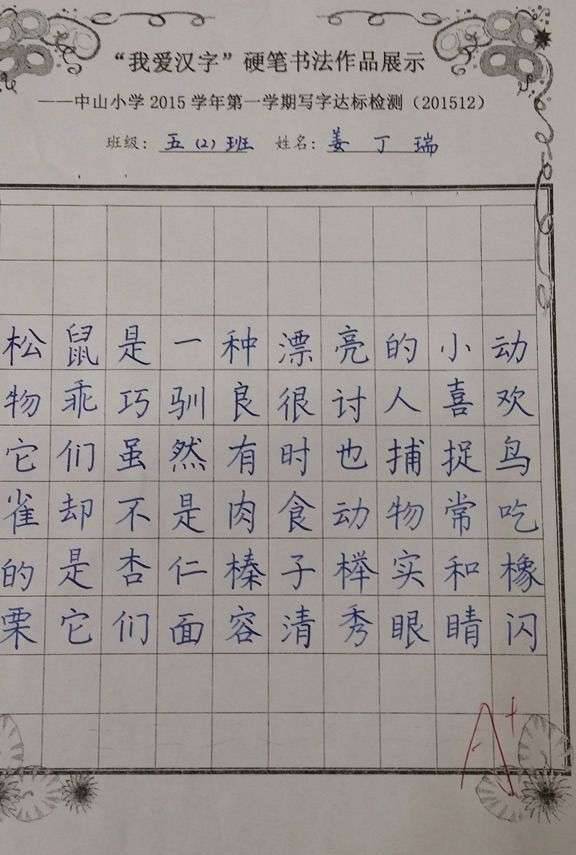 “我爱汉字”硬笔书法作品展示
——中山小学2015学年第一学期写字达标检测（201512）
班级：五（2）班 姓名：姜丁瑞
松鼠是一种漂亮的小动
物乖巧驯良很讨人喜欢
它们虽然有时也捕捉鸟
雀却不是肉食动物常吃
的是杏仁榛子榉实和橡
栗它们面容清秀眼睛闪
A+